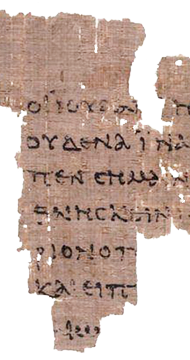 ΟΙ ΙΟΥΔΑΙ
ΟΥΔΕΝΑ ΙΝΑ
ΠΕΝ CΗΜΑΙΝ
ΘΝΗCΚΕΙΝ
ΡΙΟΝ Ο Π
ΚΑΙ ΕΙΠ